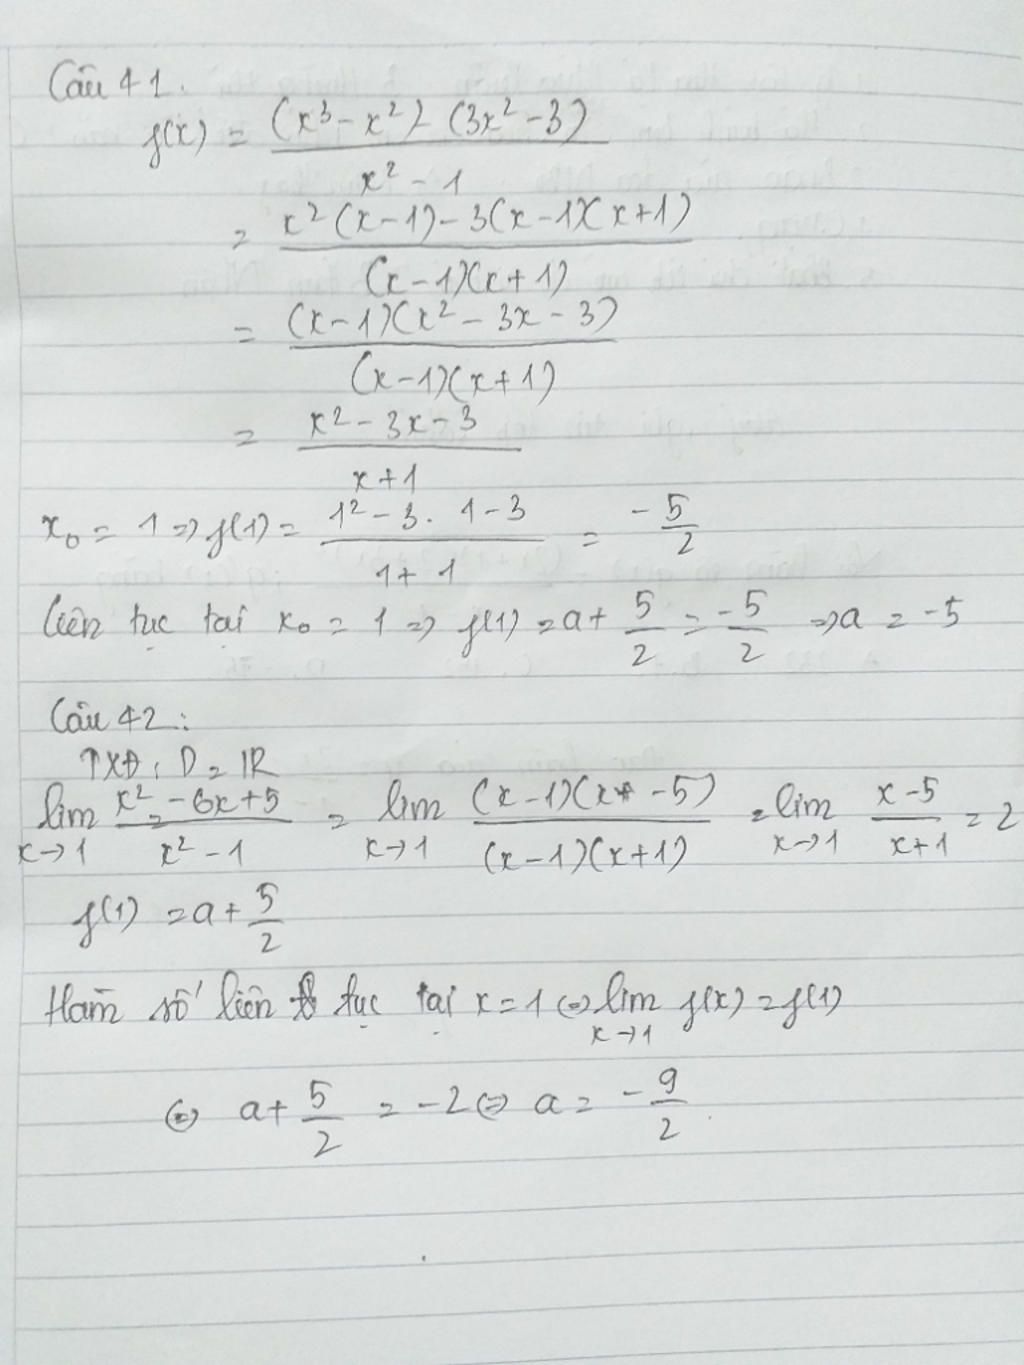 Câu 41.
f(x) = \frac{(x³ - x²) - (3x² - 3)}{x² - 1}
= \frac{x²(x-1) - 3(x-1)(x+1)}{(x-1)(x+1)}
= \frac{(x-1)(x² - 3x - 3)}{(x-1)(x+1)}
= \frac{x² - 3x - 3}{x+1}
x₀ = 1 => f(1) = \frac{1² - 3. 1 - 3}{1 + 1} = \frac{-5}{2}
liên tục tại x₀ = 1 => f(1) = a + \frac{5}{2} = \frac{-5}{2} => a = -5
Câu 42:
TXĐ: D = IR
lim_{x→1} \frac{x² - 6x + 5}{x² - 1} = lim_{x→1} \frac{(x-1)(x - 5)}{(x-1)(x+1)} = lim_{x→1} \frac{x-5}{x+1} = 2
f(1) = a + \frac{5}{2}
Hàm số liên tục tại x = 1 <=> lim_{x→1} f(x) = f(1)
<=> a + \frac{5}{2} = -2 <=> a = -\frac{9}{2}